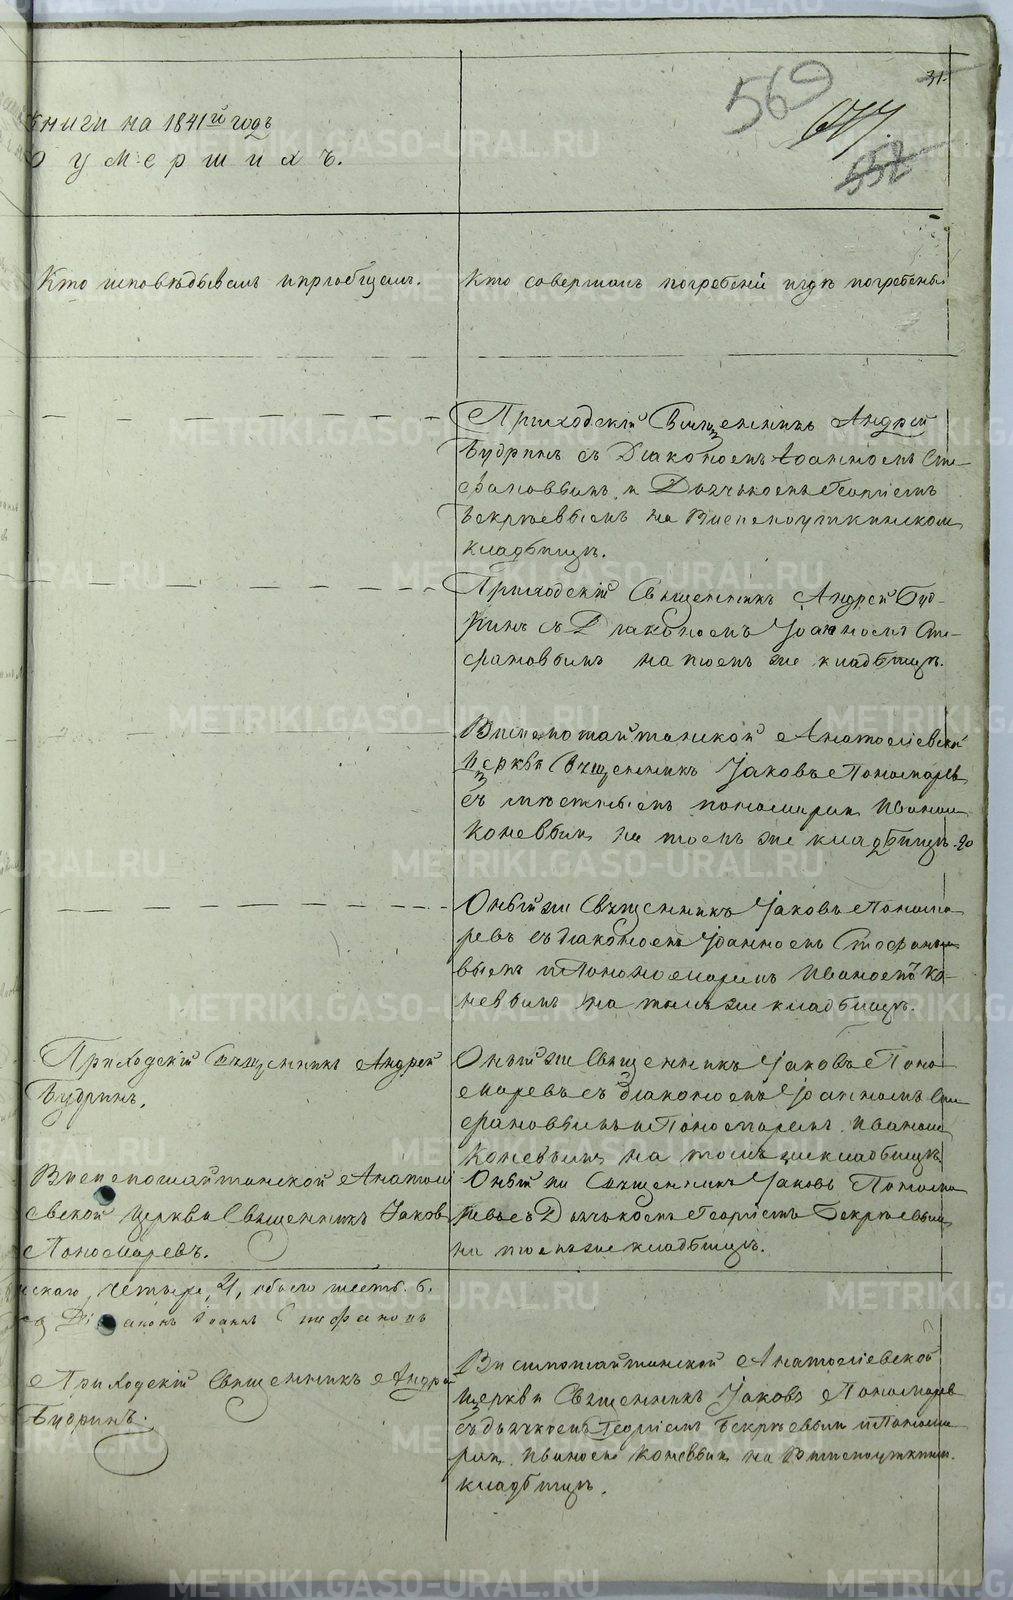 31.
569
557
книги на 1841й годъ
о умершихъ.
Кто исповѣдывалъ и приобщалъ.
Кто совершалъ погребенiе и гдѣ погребены.
Приходскiй Священникъ Андрей
Будринъ съ Дiакономъ Iоанномъ Сте-
фановымъ и Дьячькомъ Георгiемъ
Бекрѣевымъ на Висимоуткинском
кладбищѣ.
Приходскiй Священникъ Андрей Буд-
ринъ съ Дiакономъ Iоанномъ Сте-
фановымъ на томъ же кладбищѣ.
Висимошайтанской Анатолiевской
Церкви Священникъ Iаковъ Пономаревъ
съ мѣстнымъ пономаремъ Иваномъ
Коневымъ на томъ же кладбищѣ.
Оный же Священникъ Iаковъ Понома-
ревъ съ дiакономъ Iоанномъ Стефано-
вымъ и Пономаремъ Иваномъ Ко-
невымъ на томъ же кладбищѣ.
Приходскiй Священникъ Андрей
Будринъ.
Оный же Священникъ Iаковъ Поно-
маревъ съ дiакономъ Iоанномъ Сте-
фановымъ и Пономаремъ Иваномъ
Коневымъ на томъ же кладбищѣ
Висимошайтанской Анатолi-
евской Церкви Священникъ Iаковъ
Пономаревъ.
Оный же Священникъ Iаковъ Понома-
ревъ съ Дьячькомъ Георгiемъ Бекрѣевымъ
на томъ же кладбищѣ.
скаго, четыре, 4, обоего шесть. 6.
Дiаконъ Iоаннъ Стефановъ
Приходскiй Священникъ Андрей
Будринъ.
Висимошайтанской Анатолiевской
Церкви Священникъ Iаковъ Пономаревъ
съ дьячкомъ Георгiемъ Бекрѣевымъ и Понома-
ремъ Иваномъ Коневымъ на Висимоуткин.
кладбищѣ.
METRIKI.GASO-URAL.RU